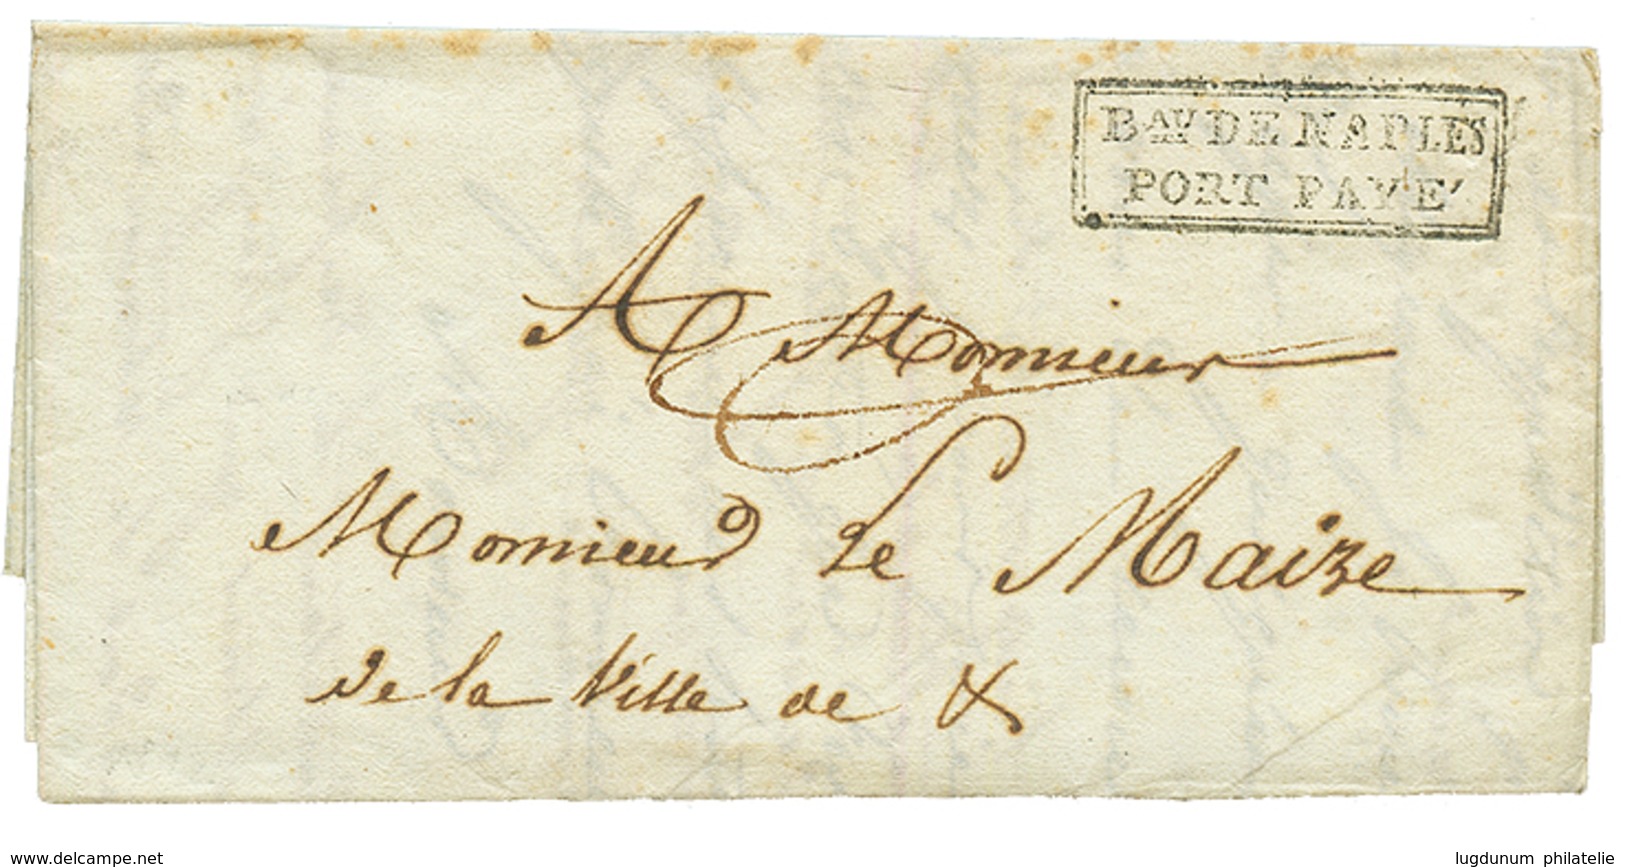 BAU DE NAPLES
PORT PAYÉ
A Monsieur
Monsieur Le Maire
de la Ville de &
www.delcampe.net
lugdunum philatelie